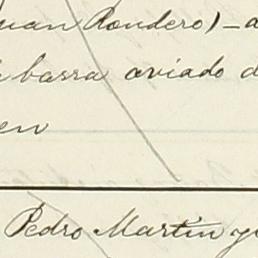 Juan Rondero) - a
barra aviado d
en
Pedro Martín y